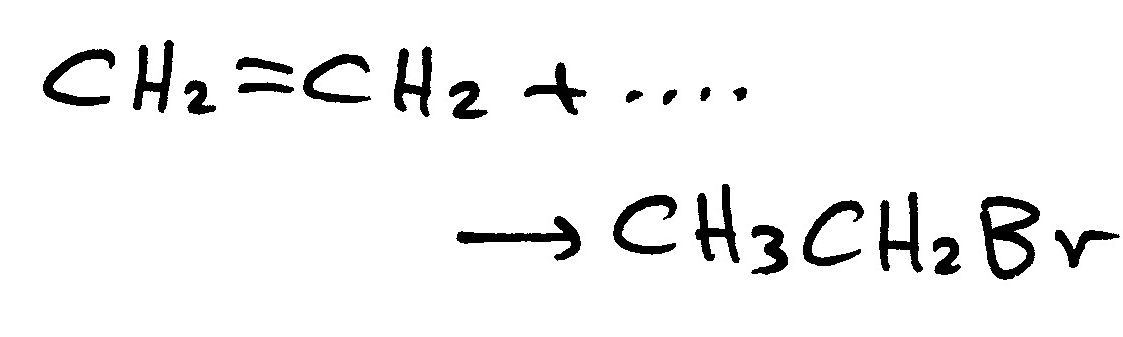 CH₂=CH₂ + ....
→ CH₃CH₂Br